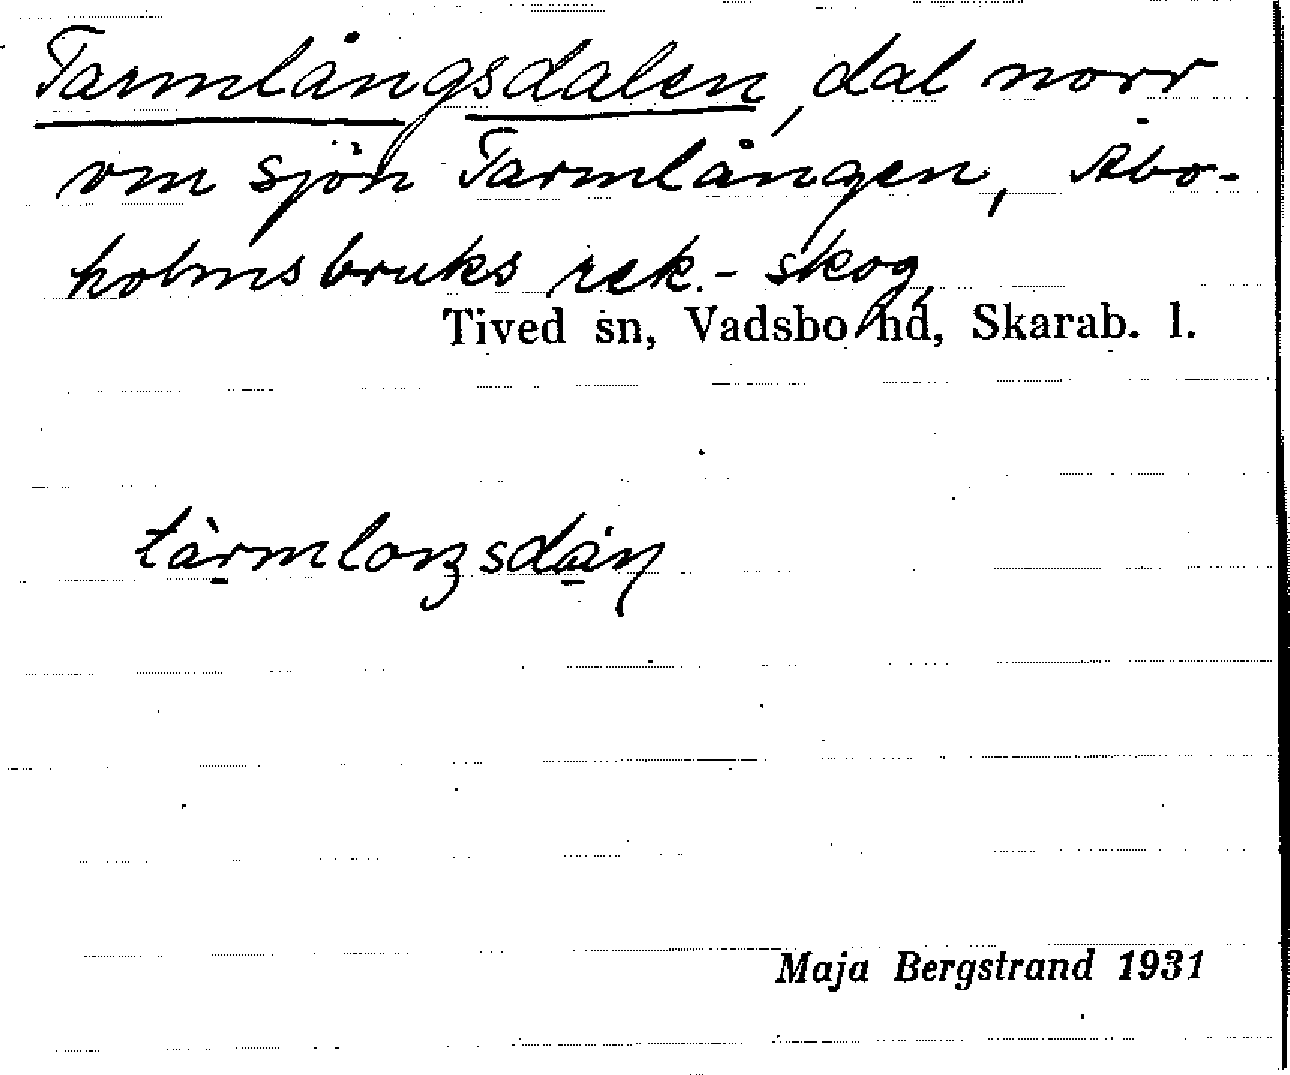 Tarmlångsdalen, dal norr
om sjön Tarmlången, Åbo-
holmsbruks rek.-skog,
Tived sn, Vadsbo hd, Skarab. l.
tàrmloŋsdáṇ
Maja Bergstrand 1931